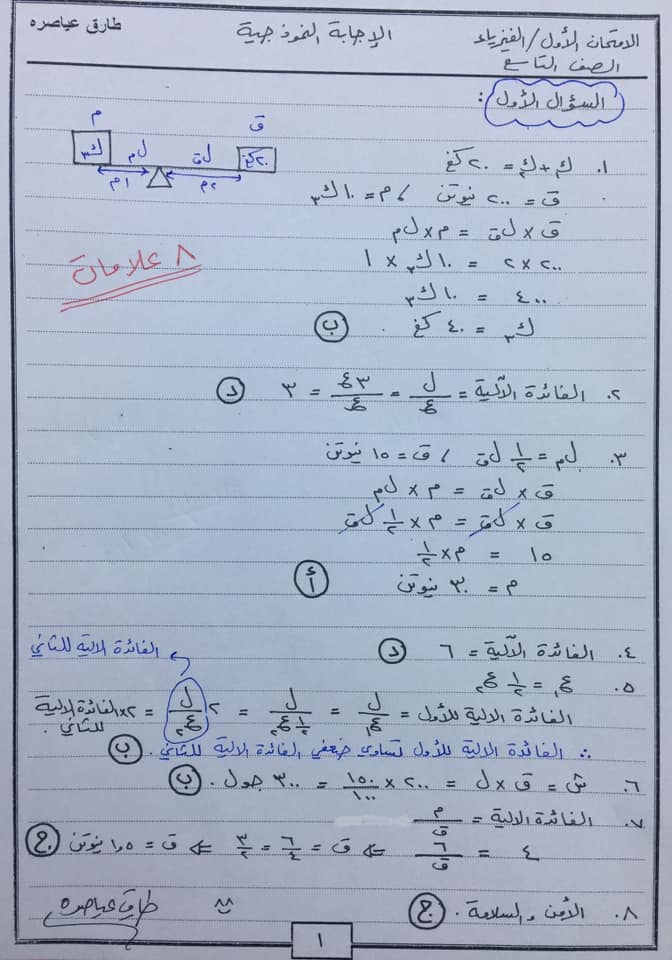 طارق عياصره
الإجابة النموذجية
الامتحان الأول/الفيزياء
الصف التاسع
السؤال الأول :
م
ق
ك٣
ل م
ل ق
٢٠ كغ
١م
٢م
١. ك١ + ك٢ = ٢٠ كغ
ق = ٢٠٠ نيوتن ، م = ١٠ ك٣
ق × ل ق = م × ل م
٢٠٠ × ٢ = ١٠ ك٣ × ١
٤٠٠ = ١٠ ك٣
ك٣ = ٤٠ كغ . (ب)
٨ علامات
٢. الفائدة الآلية = ل/ع = ٣ع/ع = ٣ (د)
٣. ل م = ١/٢ ل ق ، ق = ١٥ نيوتن
ق × ل ق = م × ل م
ق × ل ق = م × ١/٢ ل ق
١٥ = م × ١/٢
م = ٣٠ نيوتن (أ)
٤. الفائدة الآلية = ٦ (د)
الفائدة الالية للثاني
٥. ع١ = ١/٢ ع٢
الفائدة الالية للأول = ل/ع١ = ل/١/٢ ع٢ = ٢ ل/ع٢ = ٢×الفائدة الالية للثاني .
∴ الفائدة الالية للأول تساوي ضعفي الفائدة الالية للثاني . (ب)
٦. ش = ق × ل = ٢٠٠ × ١٥٠/١٠٠ = ٣٠٠ جول . (ب)
٧. الفائدة الالية = م/ق
٤ = ٦/ق ⇐ ق = ٦/٤ = ٣/٢ ⇐ ق = ١,٥ نيوتن (ج)
٨. الأمن والسلامة . (ج)
طارق عياصره
١